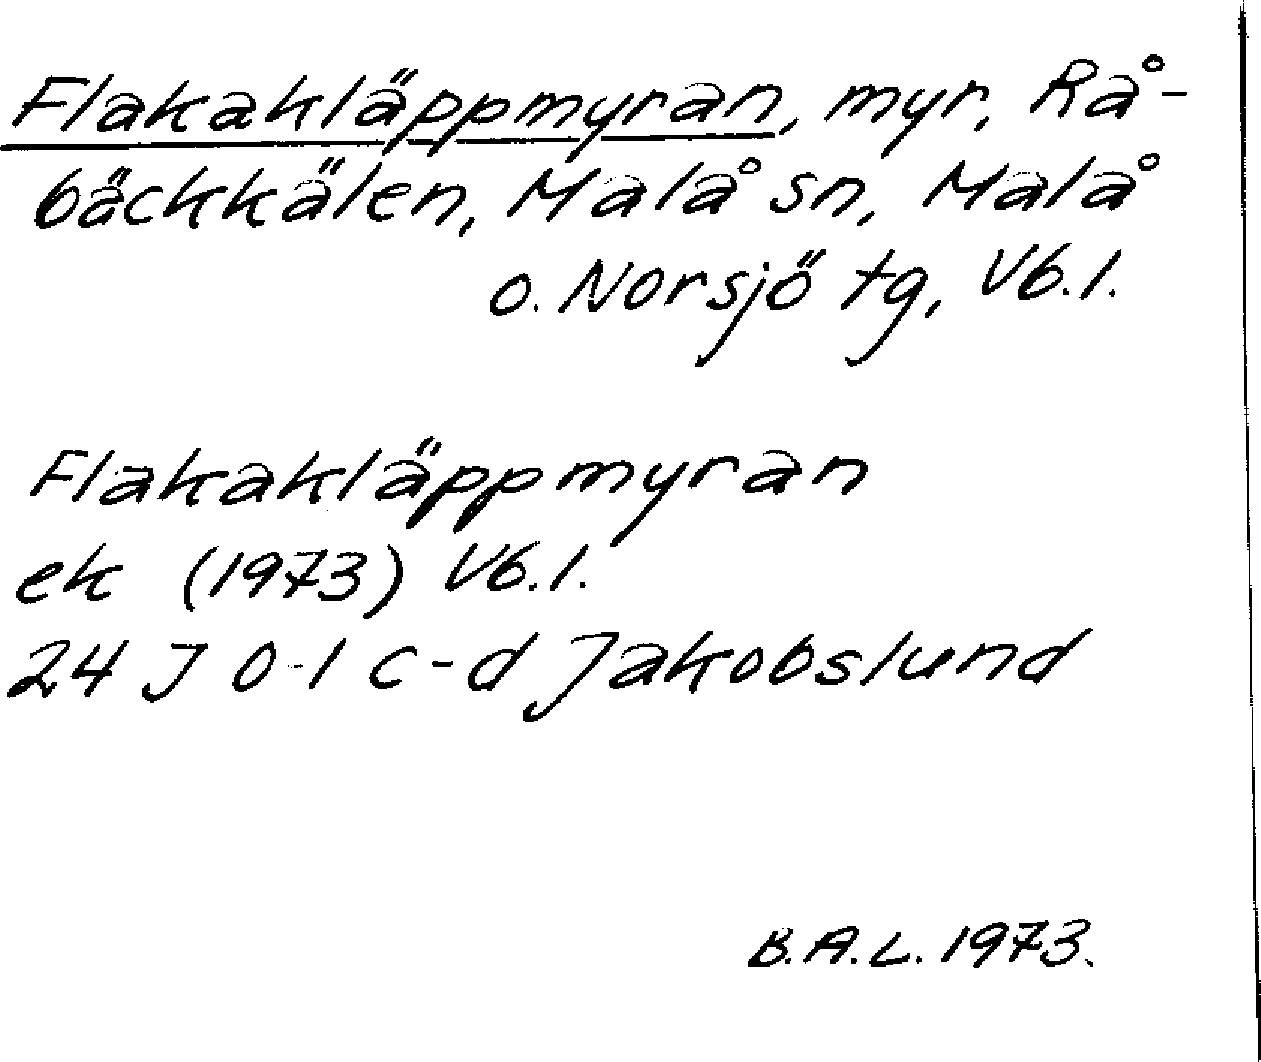 Flakakläppmyran, myr, Rå-
bäckkälen, Malå sn, Malå
o. Norsjö tg, Vb. l.
Flakakläppmyran
ek (1973) Vb. l.
24 J 0-1 c-d Jakobslund
B.A.L. 1973.